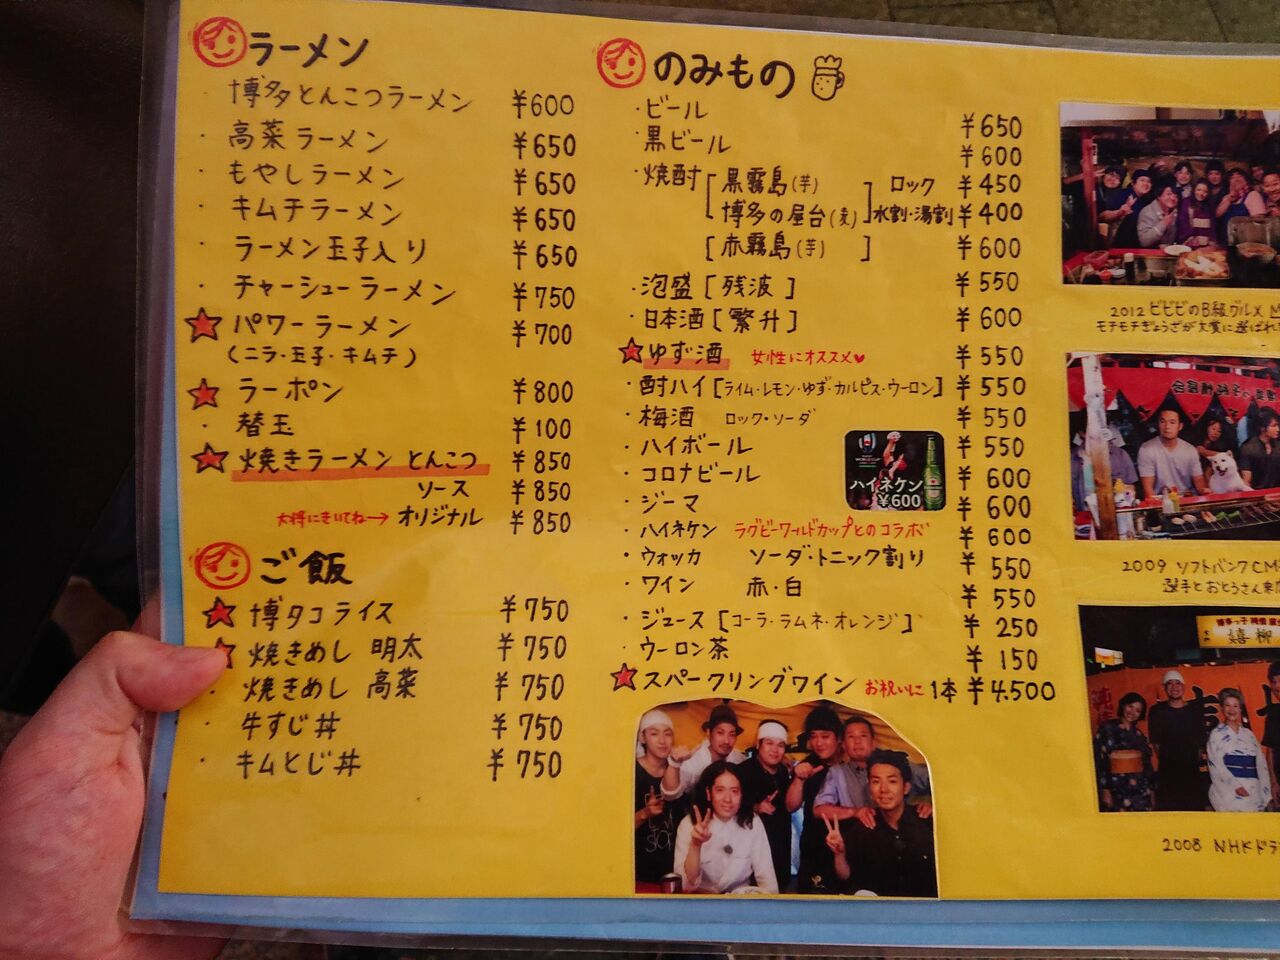 ラーメン
・博多とんこつラーメン ¥600
・高菜ラーメン ¥650
・もやしラーメン ¥650
・キムチラーメン ¥650
・ラーメン玉子入り ¥650
・チャーシューラーメン ¥750
★パワーラーメン ¥700
(ニラ・玉子・キムチ)
★ラーポン ¥800
・替玉 ¥100
★焼きラーメン とんこつ ¥850
ソース ¥850
大将にきいてね→ オリジナル ¥850
ご飯
★博タコライス ¥750
★焼きめし 明太 ¥750
・焼きめし 高菜 ¥750
・牛すじ丼 ¥750
・キムとじ丼 ¥750
のみもの
・ビール ¥650
・黒ビール ¥600
・焼酎 [黒霧島(芋)] ロック ¥450
博多の屋台(麦) 水割・湯割 ¥400
[赤霧島(芋)] ¥600
・泡盛[残波] ¥550
・日本酒[繁升] ¥600
★ゆず酒 女性にオススメ♥ ¥550
・酎ハイ[ライム・レモン・ゆず・カルピス・ウーロン] ¥550
・梅酒 ロック・ソーダ ¥550
・ハイボール ¥550
・コロナビール ¥600
・ジーマ ¥600
・ハイネケン ラグビーワールドカップとのコラボ ¥600
・ウォッカ ソーダ・トニック割り ¥550
・ワイン 赤・白 ¥550
・ジュース[コーラ・ラムネ・オレンジ] ¥250
・ウーロン茶 ¥150
★スパークリングワイン お祝いに 1本 ¥4.500
ハイネケン
¥600
2012 ビビビのB級グルメ
モチモチぎょうざが大賞に選ばれ
2009 ソフトバンクCM
選手とおとうさん
嬉柳
2008 NHKドラ